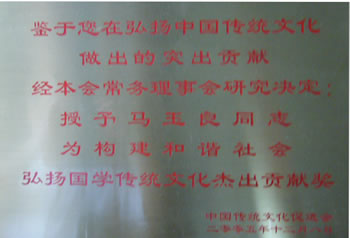 鉴于您在弘扬中国传统文化
做出的突出贡献
经本会常务理事会研究决定:
授予马玉良同志
为构建和谐社会
弘扬国学传统文化杰出贡献奖
中国传统文化促进会
二零零五年十二月八日